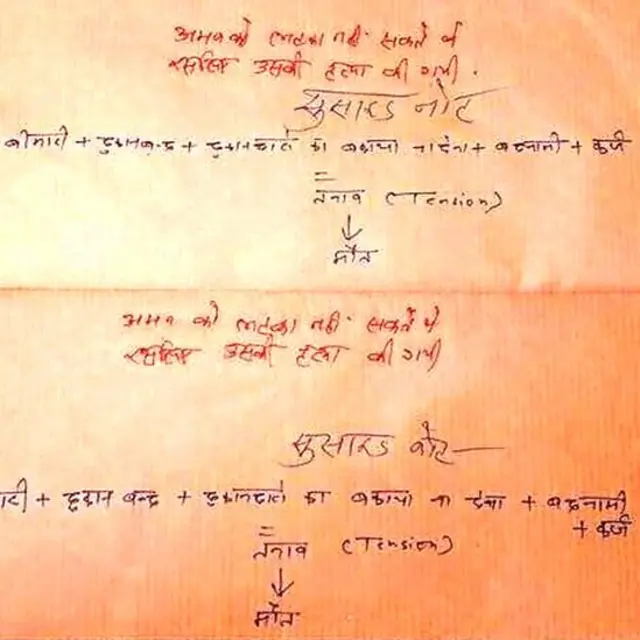 अमन को लटका नही सकते थे
इसलिए उसकी हत्या की गयी.
सुसाइड नोट
बीमारी + दुकान बन्द + दुकानदारो का बकाया ना देना + बदनामी + कर्ज
=
तनाव (Tension)
↓
मौत
अमन को लटका नही सकते थे
इसलिए उसकी हत्या की गयी
सुसाइड नोट
ारी + दुकान बन्द + दुकानदारो का बकाया ना देना + बदनामी
+ कर्ज
=
तनाव (Tension)
↓
मौत